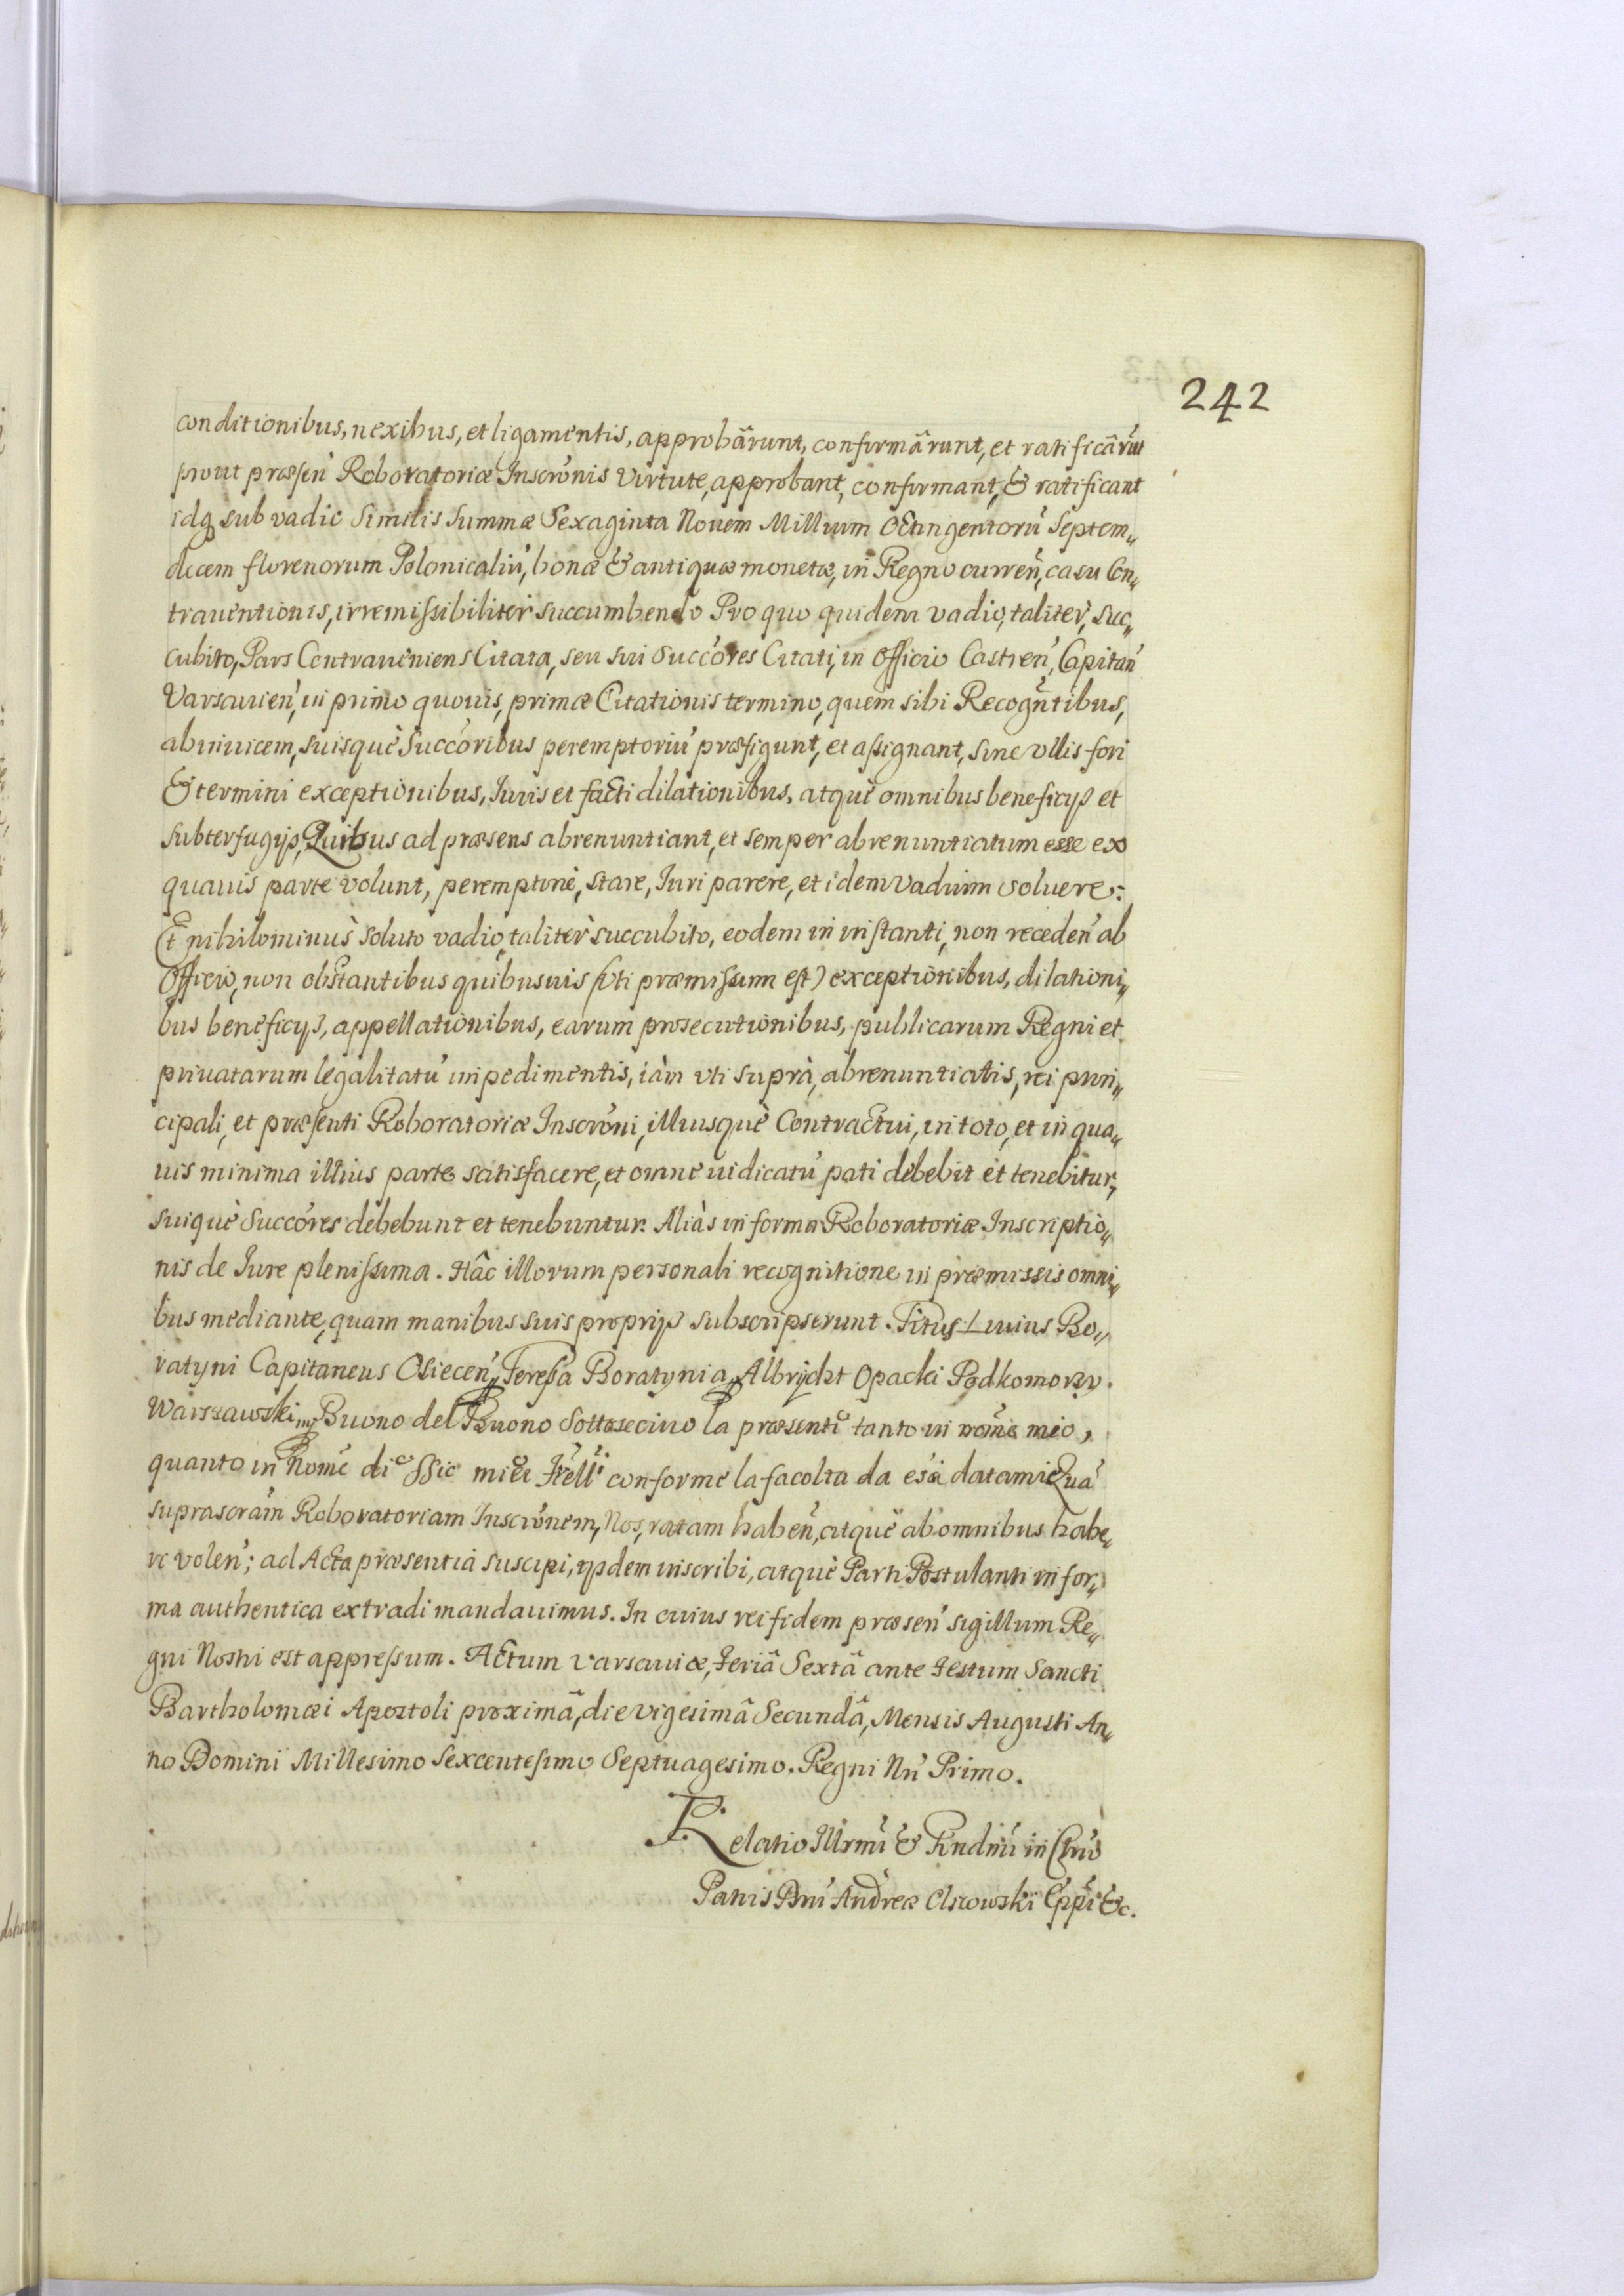 242
conditionibus, nexibus, et ligamentis, approbârunt, confirmârunt, et ratificârūt
prout præsen̄ Roboratoriæ Inscrōnis virtute, approbant, confirmant, & ratificant
idq sub vadio similis summæ Sexaginta Nouem Millium Octingentorū Septem„
decem florenorum Polonicaliū, bonæ & antiquæ monetæ, in Regno curren̄, casu Con„
trauentionis, irremissibiliter succumbendo Pro quo quidem vadio, taliter, suc„
cubito, Pars Contraueniens Citata, seu sui Succōres Citati, in Officio Castren̄, Capitan̄
Varsauien̄, in primo quouis, primæ Citationis termino, quem sibi Recogn̄tibus,
abinuicem, suisquè Succōribus peremptoriū præfigunt, et assignant, sine vllis fori
& termini exceptionibus, Iuris et facti dilationibus, atquè omnibus beneficijs et
subterfugijs, Quibus ad præsens abrenuntiant, et semper abrenuntiatum esse ex
quauis parte volunt, peremptoriè, stare, Iuri parere, et idem vadium soluere:
Et nihilominùs soluto vadio, taliter succubito, eodem in instanti, non receden̄ ab
Officio, non obstantibus quibusuis (vti præmissum est) exceptionibus, dilationi„
bus beneficijs, appellationibus, earum prosecutionibus, publicarum Regni et
priuatarum legalitatū impedimentis, iàm vti suprà, abrenuntiatis, rei prin„
cipali, et præsenti Roboratoriæ Inscrōni, illiusquè Contractui, in toto, et in qua„
uis minima illius parte satisfacere, et omne iudicatū pati debebit et tenebitur,
suiquè Succōres debebunt et tenebuntur. Aliàs in forma Roboratoriæ Inscriptio„
nis de Iure plenissima. Hâc illorum personali recognitione in præmissis omni„
bus mediante, quam manibus suis proprijs subscripserunt. Titus Liuius Bo„
ratyni Capitaneus Osiecen̄, Teresa Boratynia, Albrycht Opacki Podkomorzy
Warszawski, Buono del Buono Sottoscriuo la præsente tanto in nome mio,
quanto in Nome di SSic miei Frēlli conforme la facolta da essi datami Quā
suprascrām Roboratoriam Inscrōnem, Nos, ratam haben̄, atquè ab omnibus habe„
re volen̄; ad Acta præsentia suscipi, ijsdem inscribi, atquè Parti Postulanti in for„
ma authentica extradi mandauimus. In cuius rei fidem præsen̄ sigillum Re„
gni Nostri est appressum. Actum Varsauiæ, Feriâ Sextâ ante Festum Sancti
Bartholomæi Apostoli proximâ, die vigesimâ Secundâ, Mensis Augusti An„
no Domini Millesimo Sexcentesimo Septuagesimo. Regni Nrī Primo.
Relatio Illrmī & Rndmī in Chrō
Patris Dnī Andreæ Olszowski Eppī &c.